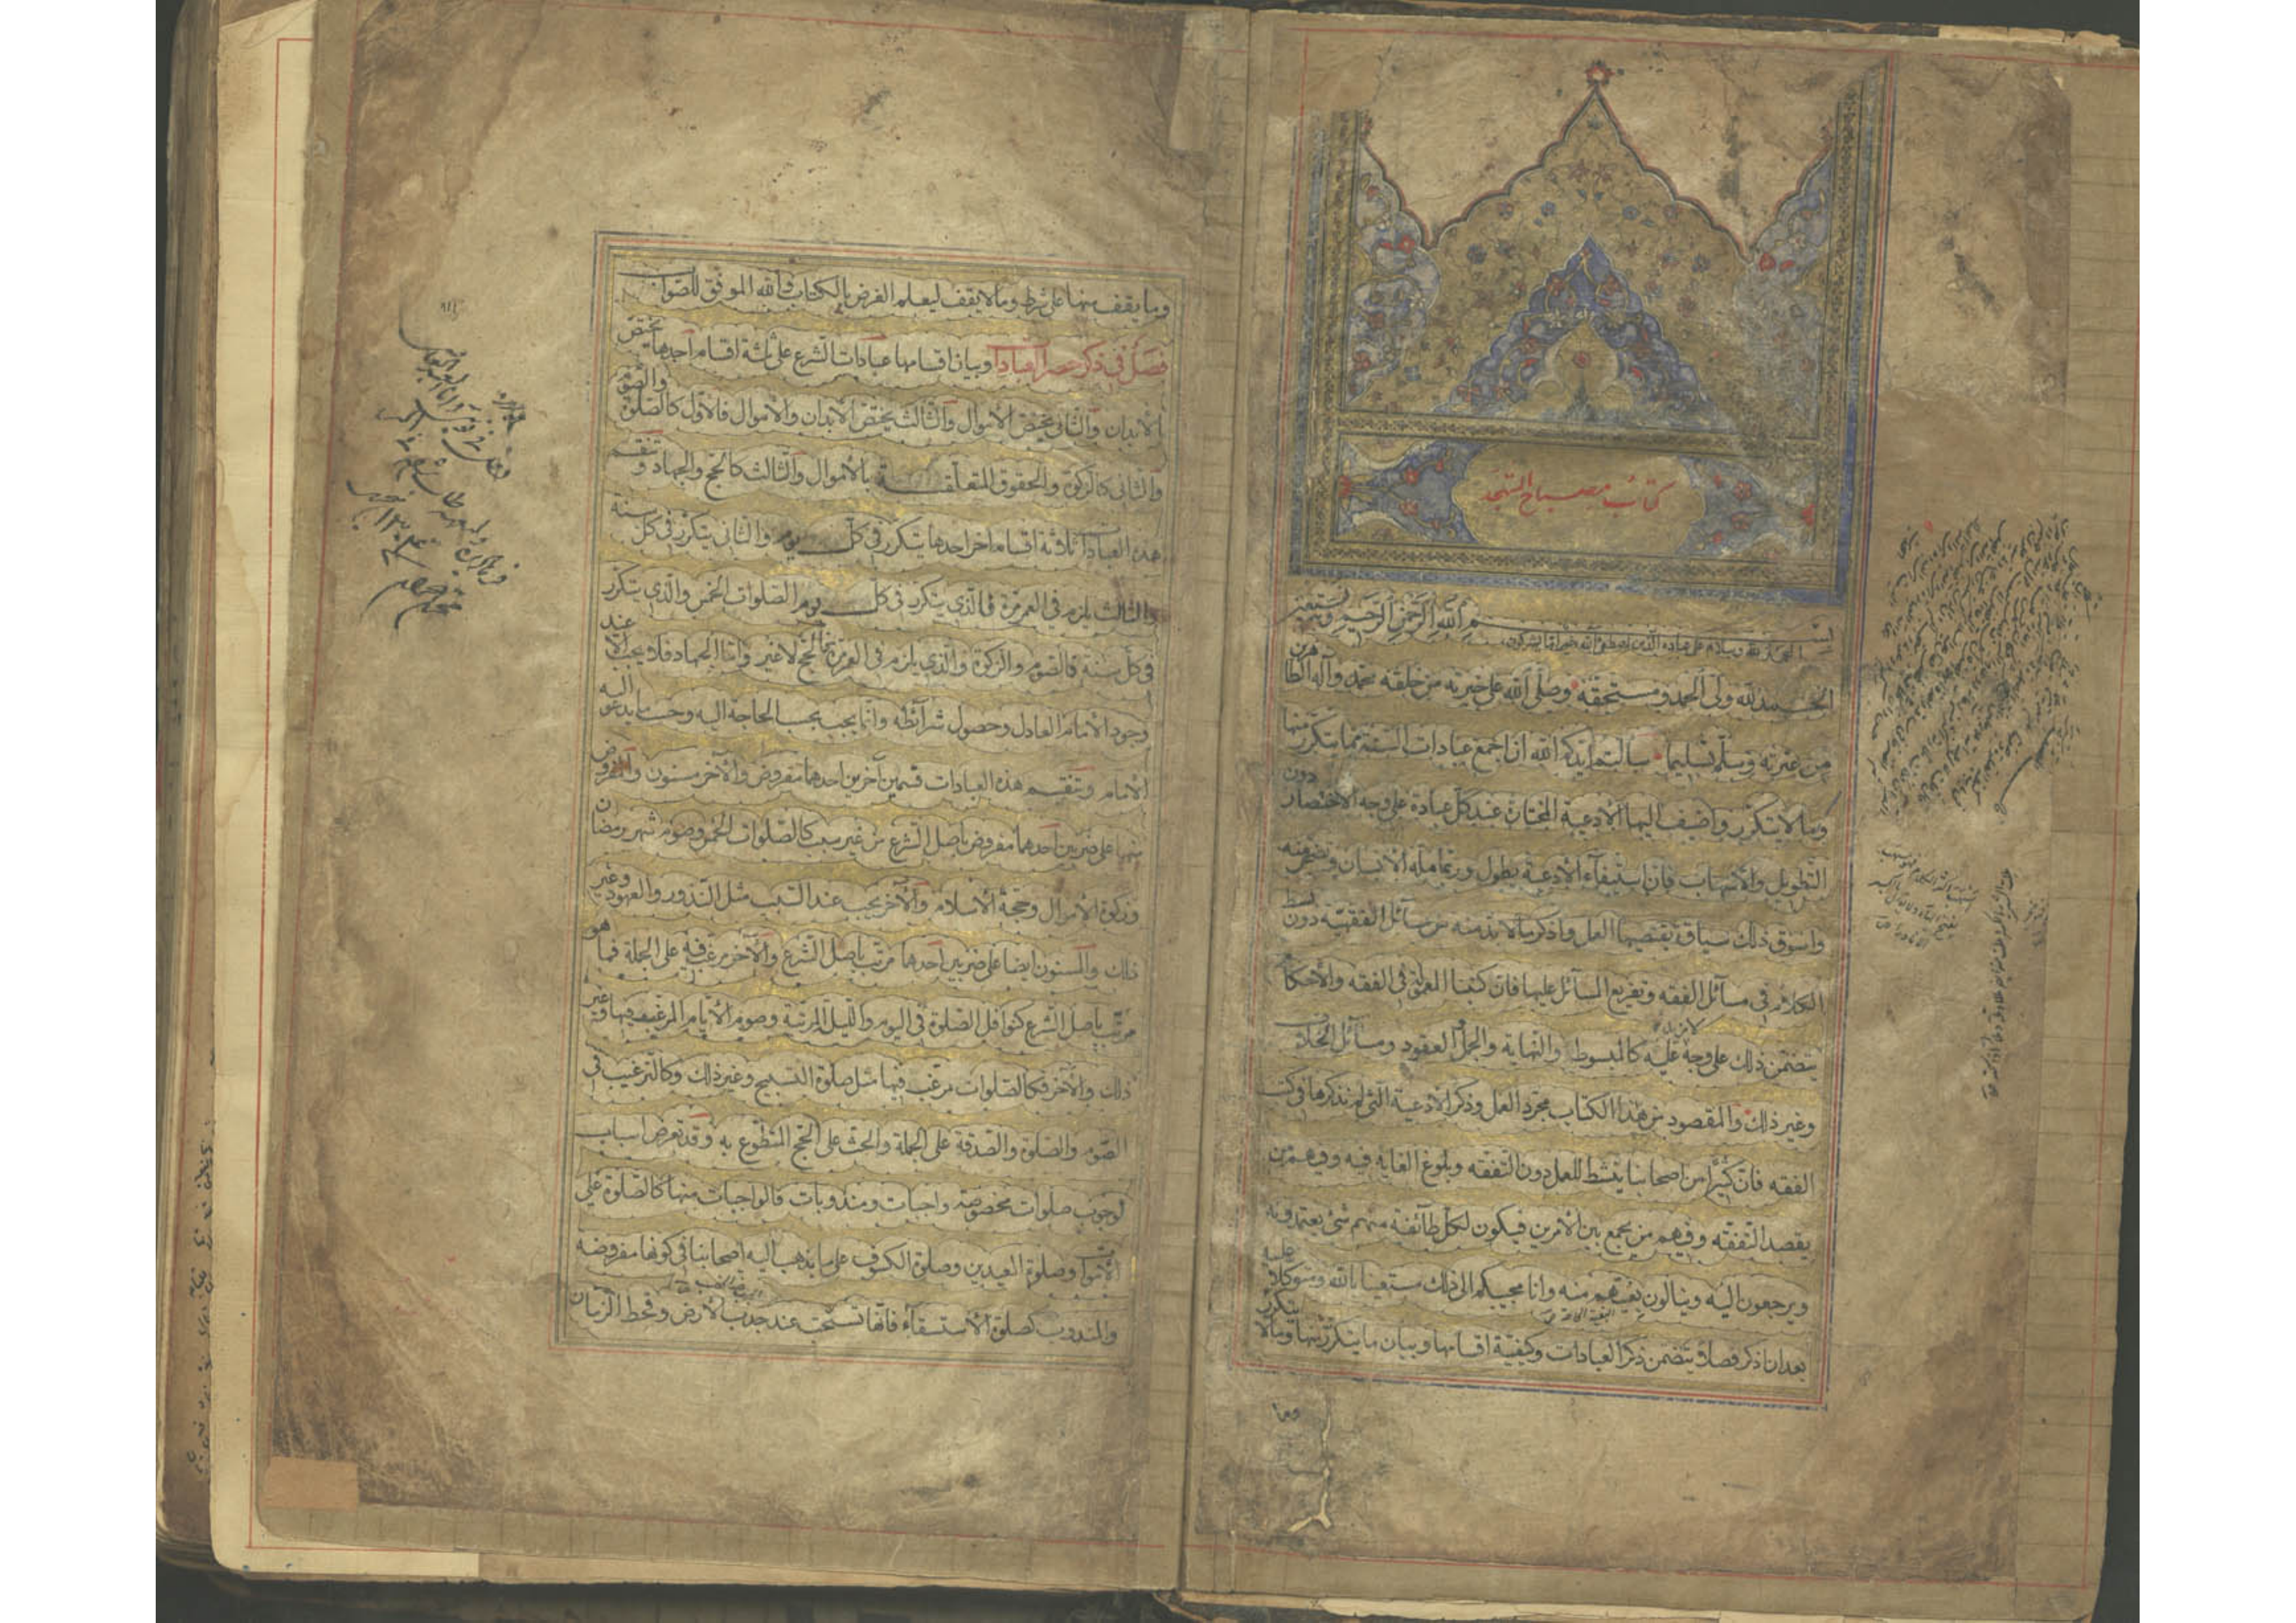 كتاب مصباح المتهجد
بسم الله الرحمن الرحيم وبه نستعين
الحمد لله وسلام على عباده الذين اصطفى آلله خير اما يشركون
الحمد لله ولى الحمد ومستحقه وصلى الله على خيرته من خلقه محمد وآله الطاهرين
من عترته وسلم تسليما سألتم ايدكم الله ان اجمع عبادات السنة مما يتكرر منها
وما لا يتكرر واضيف اليها الادعية المختارة عند كل عبادة على وجه الاختصار دون
التطويل والاسهاب فان استيفاء الادعية يطول وربما مله الانسان وتضجر منه
واسوق ذلك سياقة يقتضيها العمل واذكر ما لا بد منه من مسائل الفقهية دون بسط
الكلام فى مسائل الفقه وتفريع المسائل عليها فان كتبنا المعمولة فى الفقه والاحكام
يتضمن ذلك على وجه لا مزيد عليه كالمبسوط والنهاية والجمل والعقود ومسائل الخلاف
وغير ذلك والمقصود من هذا الكتاب مجرد العمل وذكر الادعية التى لم نذكرها فى كتب
الفقه فان كثيرا من اصحابنا ينشط للعمل دون التفقه وبلوغ الغاية فيه وفيهم من
يقصد التفقه وفيهم من يجمع بين الامرين فيكون لكل طائفة منهم شئ يعتمدونه
ويرجعون اليه وينالون بغيتهم منه وانا مجيبكم الى ذلك مستعينا بالله ومتوكلا عليه
بعد ان اذكر فصلا يتضمن ذكر العبادات وكيفية اقسامها وبيان ما يتكرر منها وما لا يتكرر
وما يقف منها على شرط وما لا يقف ليعلم الغرض بالكتاب والله الموفق للصواب
فصل فى ذكر حصر العبادات وبيان اقسامها عبادات الشرع على ثلثة اقسام احدها يختص
الابدان والثانى يختص الاموال والثالث يختص الابدان والاموال فالاول كالصلوة والصوم
والثانى كالزكوة والحقوق المتعلقة بالاموال والثالث كالحج والجهاد وتنقسم
هذه العبادات ثلاثة اقسام اخر احدها يتكرر فى كل يوم والثانى يتكرر فى كل سنة
والثالث يلزم فى العمر مرة فالذى يتكرر فى كل يوم الصلوات الخمس والذى يتكرر
فى كل سنة فالصوم والزكوة والذى يلزم فى العمر مرة فالحج لا غير واما الجهاد فلا يجب الا عند
وجود الامام العادل وحصول شرائطه وانما يجب بحسب الحاجة اليه وحسب ما يدعو اليه
الامام وتنقسم هذه العبادات قسمين آخرين احدهما مفروض والآخر مسنون والمفروض
منها على ضربين احدهما مفروض باصل الشرع من غير سبب كالصلوات الخمس وصوم شهر رمضان
وزكوة الاموال وحجة الاسلام والآخر يجب عند السبب مثل النذور والعهود وغير
ذلك والمسنون ايضا على ضربين احدهما مرتب باصل الشرع والآخر مرغب فيه على الجملة فما هو
مرتب باصل الشرع كنوافل الصلوة فى اليوم والليل المرتبة وصوم الايام المرغب فيها وغير
ذلك والآخر فكالصلوات مرغب فيها مثل صلوة التسبيح وغير ذلك وكالترغيب فى
الصوم والصلوة والصدقة على الجملة والحث على الحج المتطوع به وقد تعرض اسباب
لوجوب صلوات مخصوصة واجبات ومندوبات فالواجبات منها كالصلوة على
الاموات وصلوة العيدين وصلوة الكسوف على ما يذهب اليه اصحابنا فى كونها مفروضة
والمندوب كصلوة الاستسقاء فانها تستحب عند جدب الارض وقحط الزمان